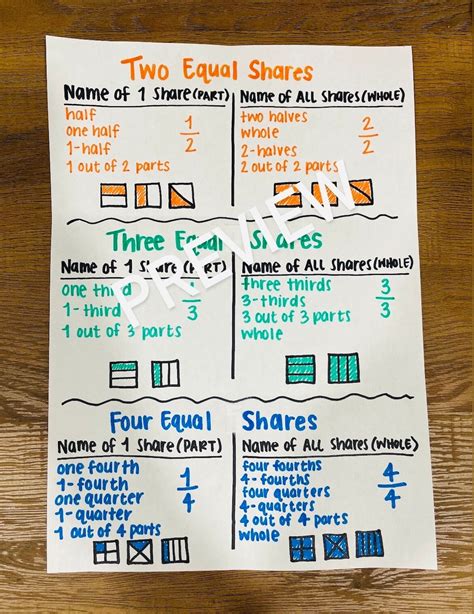 Two Equal Shares
Name of 1 Share (PART)
half
one half
1-half
1 out of 2 parts
1
2
Name of ALL Shares (WHOLE)
two halves
whole
2-halves
2 out of 2 parts
2
2
Three Equal Shares
Name of 1 Share (PART)
one third
1-third
1 out of 3 parts
1
3
Name of ALL Shares (WHOLE)
three thirds
3-thirds
3 out of 3 parts
whole
3
3
Four Equal Shares
Name of 1 Share (PART)
one fourth
1-fourth
one quarter
1-quarter
1 out of 4 parts
1
4
Name of ALL Shares (WHOLE)
four fourths
4-fourths
four quarters
4-quarters
4 out of 4 parts
whole
4
4
PREVIEW